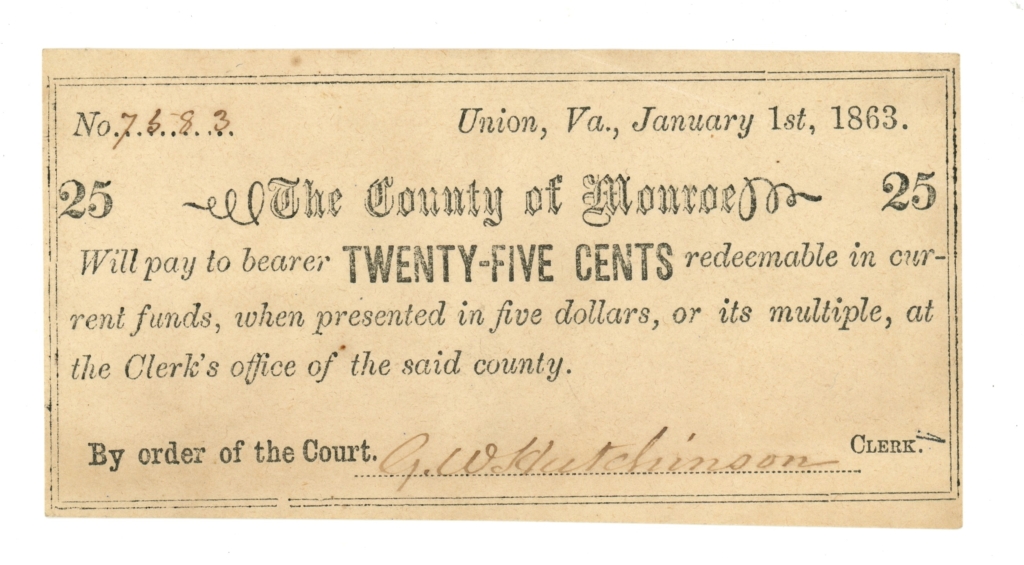 No. 7583 Union, Va., January 1st, 1863.
25 The County of Monroe 25
Will pay to bearer TWENTY-FIVE CENTS redeemable in cur-
rent funds, when presented in five dollars, or its multiple, at
the Clerk's office of the said county.
By order of the Court. G. W. Hutchinson CLERK.